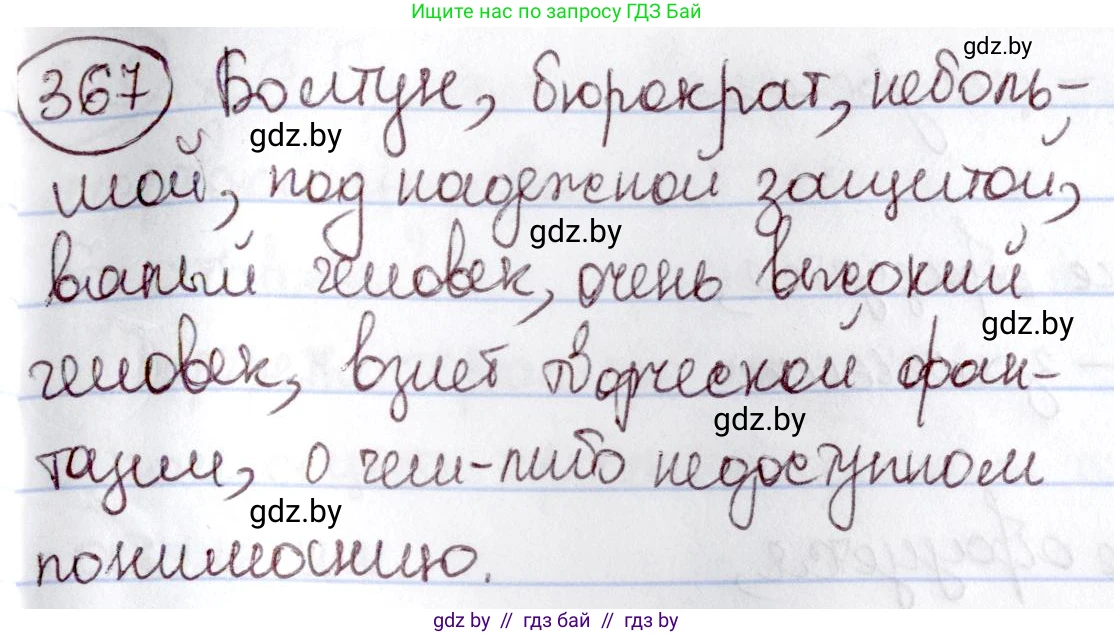 Ищите нас по запросу ГДЗ Бай
gdz.by
367 Болтун, бюрократ, неболь-
gdz.by
шой, под надежной защитой,
gdz.by
вялый человек, очень высокий
gdz.by
человек, взлет творческой фан-
gdz.by
тазии, о чем-либо недоступном
gdz.by
пониманию.
gdz.by // гдз бай // гдз by